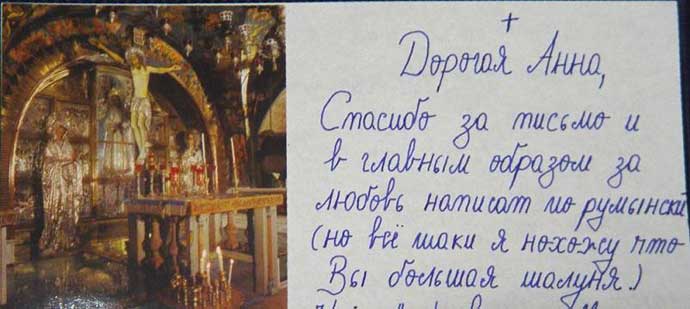 +
Дорогая Анна,
Спасибо за письмо и
в главным образом за
любовь написат по румынски
(но всё таки я нохожу что
Вы большая шалуня.)